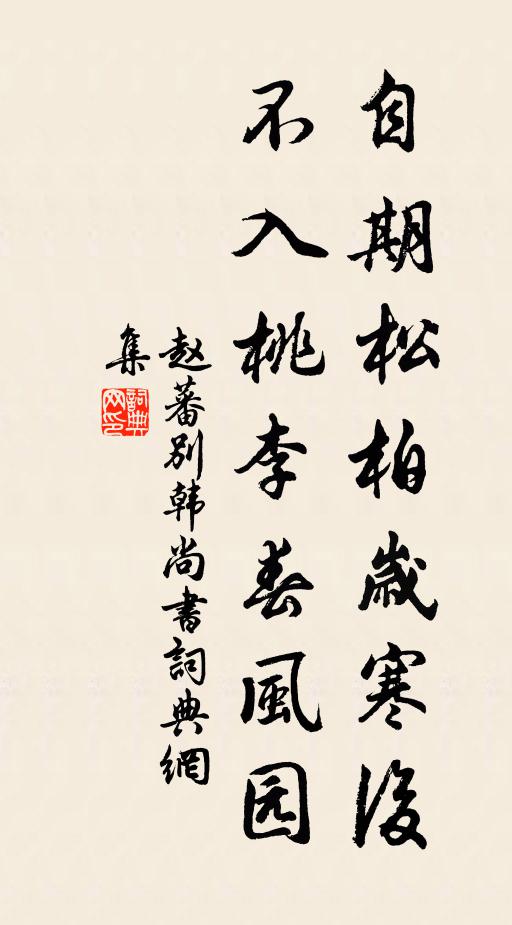 自期松柏歲寒後
不入桃李春風园
赵蕃别韩尚書詞典網
集
詞典
网印